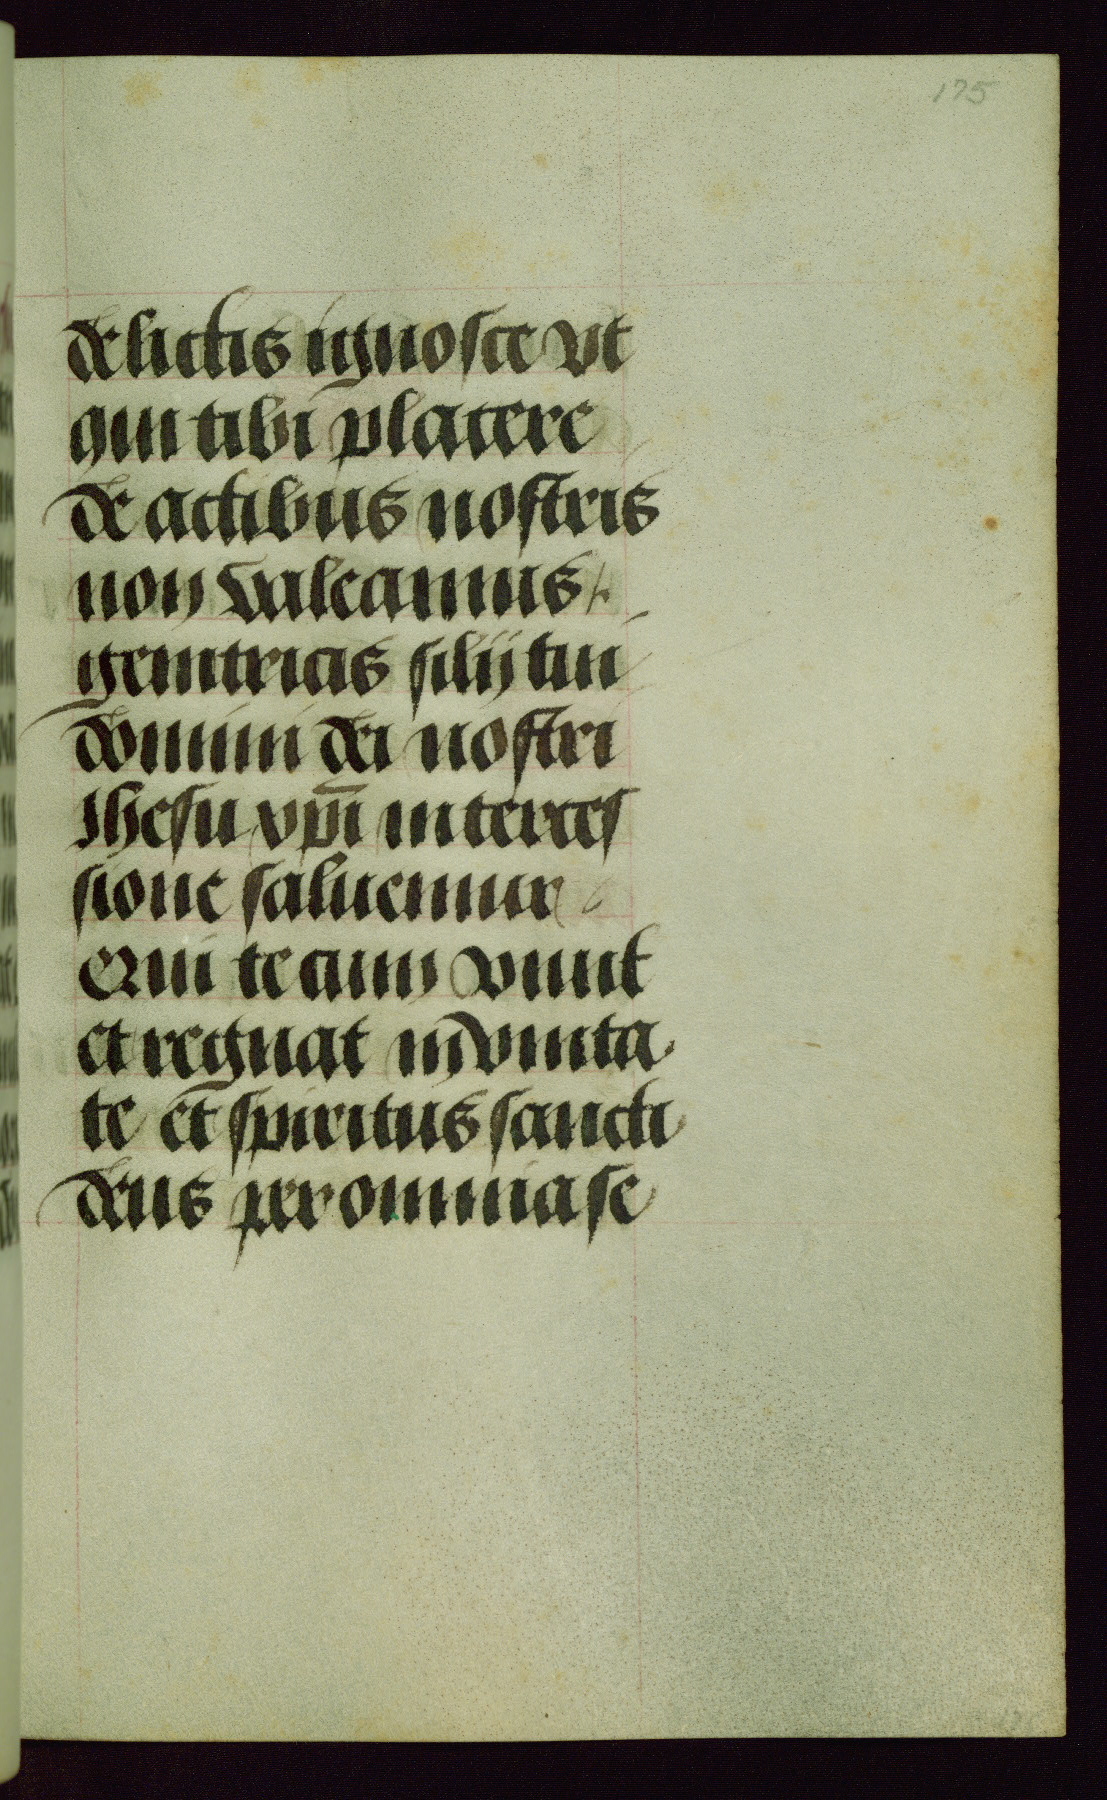 175
delictis ignosce vt
qui tibi placere
de actibus nostris
non valeamus
genitricis filij tui
domini dei nostri
Ihesu xp̄i interces
sione saluemur
Qui tecum viuit
et regnat in vnita
te et spiritus sancti
deus per omnia se